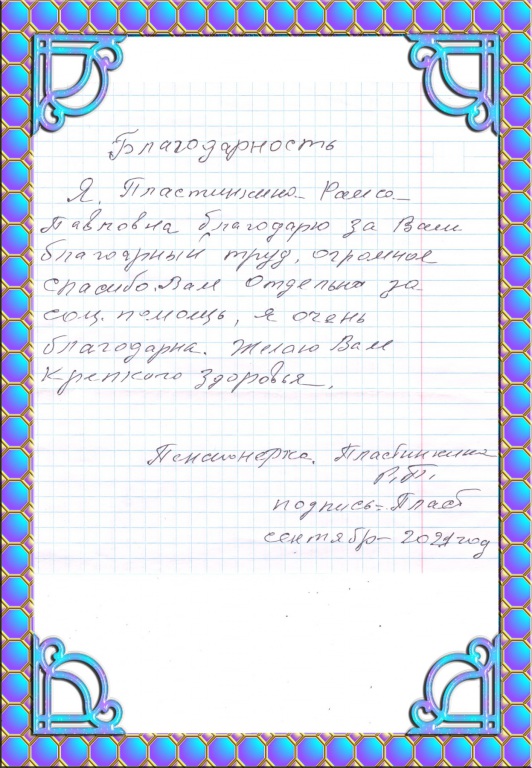 Благодарность
Я. Пластинкина Раиса
Павловна благодарю за Ваш
благоарный труд, огромное
спасибо. Вам отдельно за
соц. помощь, я очень
благодарна. Желаю Вам
крепкого здоровья.
Пенсионерка. Пластинкина
Р.П.
подпись = Пласт
сентябрь - 2021 год